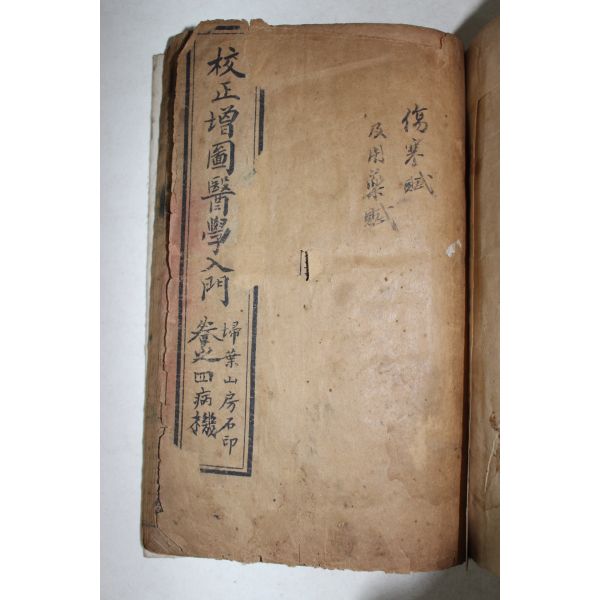 傷寒賦
及用藥賦
校正增圖醫學入門
掃葉山房石印
卷之四病機